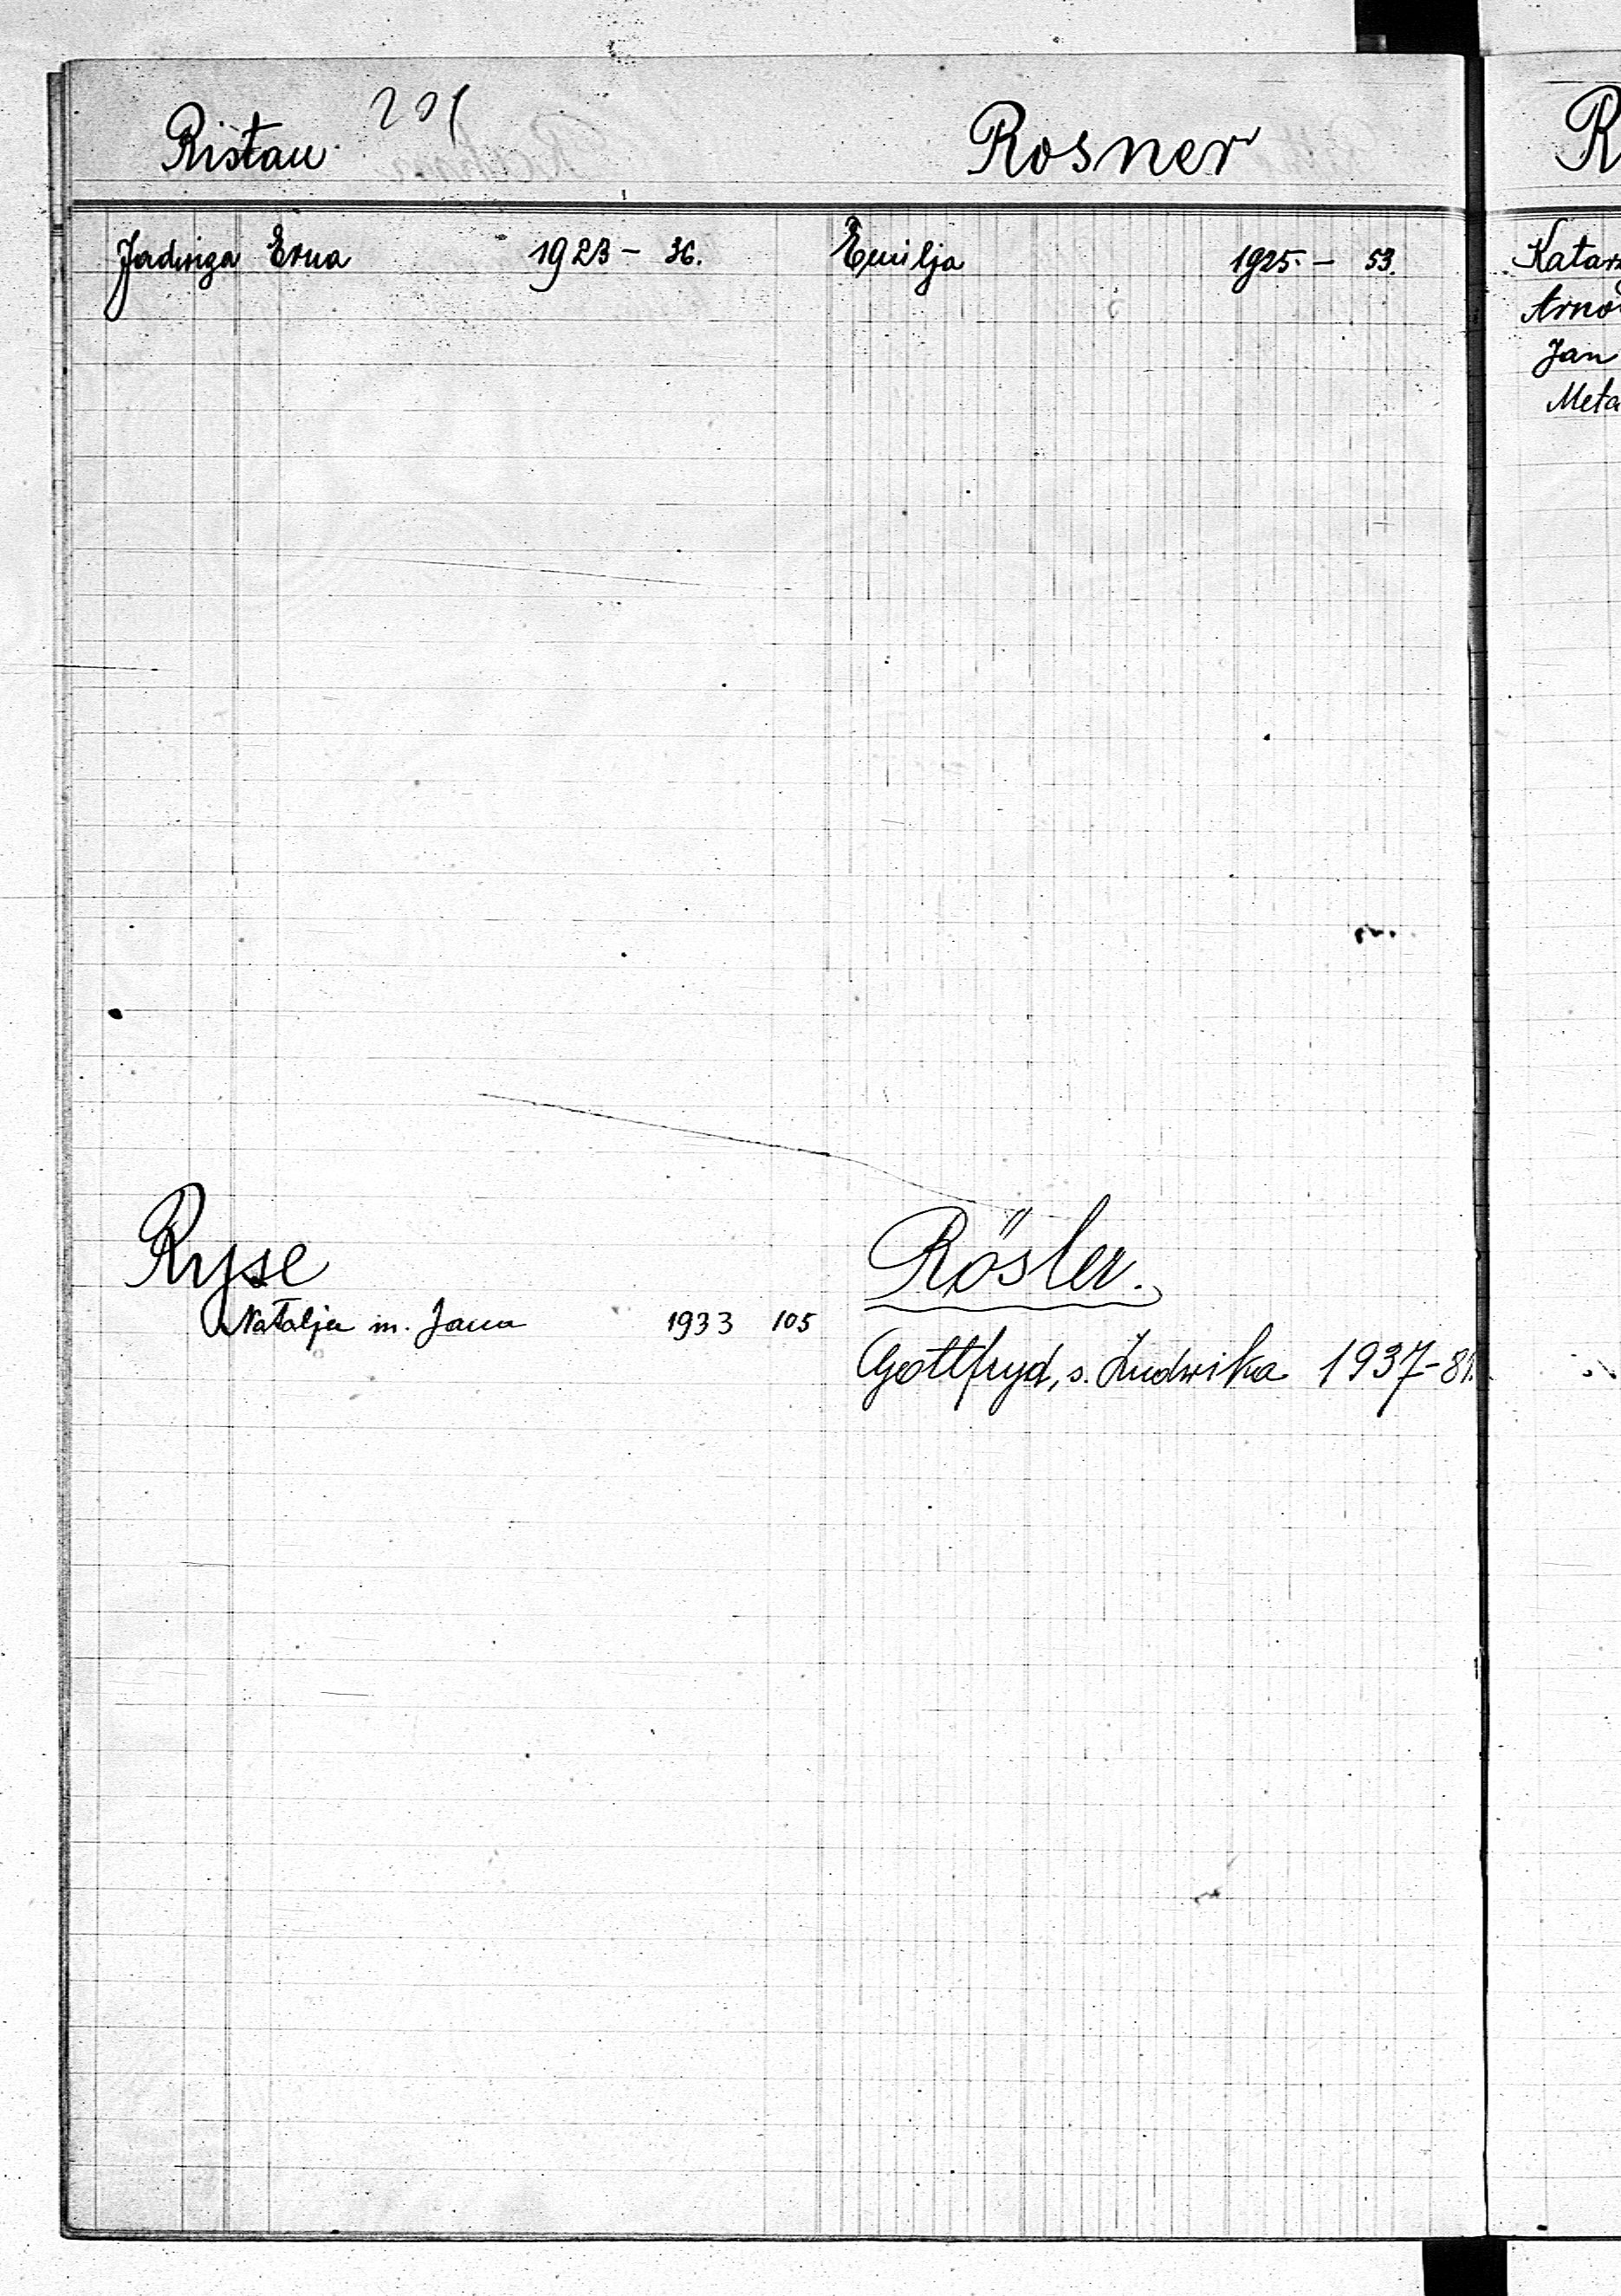 201
Ristau
Jadwiga Erna 1923 - 36.
Ryse
Natalja m. Jana 1933 105
Rosner
Emilja 1925. - 53.
Rösler.
Gottfryd, s. Ludwika 1937-81.
R
Katarz
Arno
Jan
Meta